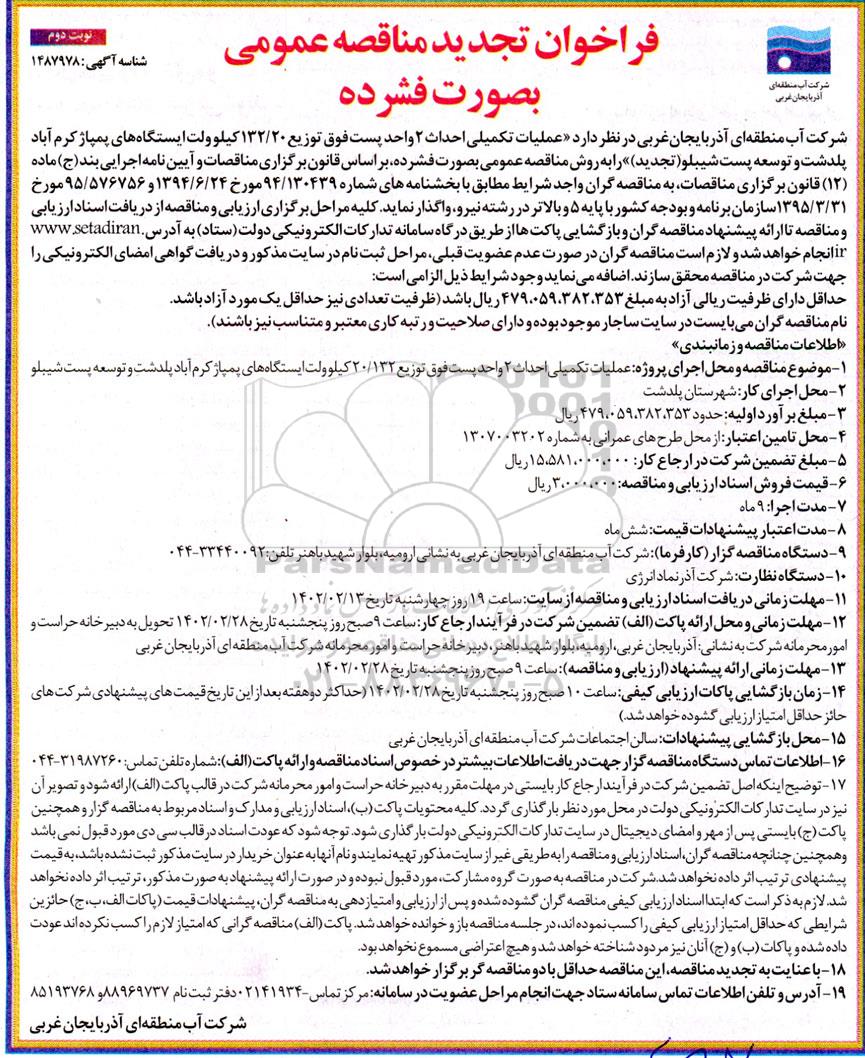 نوبت دوم
شناسه آگهی: ۱۴۸۷۹۷۸
فراخوان تجدید مناقصه عمومی
بصورت فشرده
شرکت آب منطقه‌ای
آذربایجان غربی
شرکت آب منطقه‌ای آذربایجان غربی در نظر دارد «عملیات تکمیلی احداث ۲ واحد پست فوق توزیع ۱۳۲/۲۰ کیلو ولت ایستگاه‌های پمپاژ کرم آباد
پلدشت و توسعه پست شیبلو (تجدید)» را به روش مناقصه عمومی بصورت فشرده، بر اساس قانون برگزاری مناقصات و آیین نامه اجرایی بند (ج) ماده
(۱۲) قانون برگزاری مناقصات، به مناقصه گران واجد شرایط مطابق با بخشنامه های شماره ۹۴/۱۳۰۴۳۹ مورخ ۱۳۹۴/۶/۲۴ و ۹۵/۵۷۶۷۵۶ مورخ
۱۳۹۵/۳/۳۱ سازمان برنامه و بودجه کشور با پایه ۵ و بالاتر در رشته نیرو، واگذار نماید. کلیه مراحل برگزاری ارزیابی و مناقصه از دریافت اسناد ارزیابی
و مناقصه تا ارائه پیشنهاد مناقصه گران و بازگشایی پاکت ها از طریق درگاه سامانه تدارکات الکترونیکی دولت (ستاد) به آدرس www.setadiran.
ir انجام خواهد شد و لازم است مناقصه گران در صورت عدم عضویت قبلی، مراحل ثبت نام در سایت مذکور و دریافت گواهی امضای الکترونیکی را
جهت شرکت در مناقصه محقق سازند. اضافه می نماید وجود شرایط ذیل الزامی است:
حداقل دارای ظرفیت ریالی آزاد به مبلغ ۴۷۹،۰۵۹،۳۸۲،۳۵۳ ریال باشد (ظرفیت تعدادی نیز حداقل یک مورد آزاد باشد.
نام مناقصه گران می بایست در سایت ساجار موجود بوده و دارای صلاحیت و رتبه کاری معتبر و متناسب نیز باشند).
«اطلاعات مناقصه و زمانبندی»
۱- موضوع مناقصه و محل اجرای پروژه: عملیات تکمیلی احداث ۲ واحد پست فوق توزیع ۲۰/۱۳۲ کیلو ولت ایستگاه‌های پمپاژ کرم آباد پلدشت و توسعه پست شیبلو
۲- محل اجرای کار: شهرستان پلدشت
۳- مبلغ برآورد اولیه: حدود ۴۷۹،۰۵۹،۳۸۲،۳۵۳ ریال
۴- محل تامین اعتبار: از محل طرح های عمرانی به شماره ۱۳۰۷۰۰۳۲۰۲
۵- مبلغ تضمین شرکت در ارجاع کار: ۱۵،۵۸۱،۰۰۰،۰۰۰ ریال
۶- قیمت فروش اسناد ارزیابی و مناقصه: ۳،۰۰۰،۰۰۰ ریال
۷- مدت اجرا: ۹ ماه
۸- مدت اعتبار پیشنهادات قیمت: شش ماه
۹- دستگاه مناقصه گزار (کارفرما): شرکت آب منطقه ای آذربایجان غربی به نشانی ارومیه، بلوار شهید باهنر تلفن: ۳۳۴۴۰۰۹۲-۰۴۴
۱۰- دستگاه نظارت: شرکت آذر نماد انرژی
۱۱- مهلت زمانی دریافت اسناد ارزیابی و مناقصه از سایت: ساعت ۱۹ روز چهارشنبه تاریخ ۱۴۰۲/۰۲/۱۳
۱۲- مهلت زمانی و محل ارائه پاکت (الف) تضمین شرکت در فرآیند ارجاع کار: ساعت ۹ صبح روز پنجشنبه تاریخ ۱۴۰۲/۰۲/۲۸ تحویل به دبیرخانه حراست و
امور محرمانه شرکت به نشانی: آذربایجان غربی، ارومیه، بلوار شهید باهنر، دبیرخانه حراست و امور محرمانه شرکت آب منطقه ای آذربایجان غربی
۱۳- مهلت زمانی ارائه پیشنهاد (ارزیابی و مناقصه): ساعت ۹ صبح روز پنجشنبه تاریخ ۱۴۰۲/۰۲/۲۸
۱۴- زمان بازگشایی پاکات ارزیابی کیفی: ساعت ۱۰ صبح روز پنجشنبه تاریخ ۱۴۰۲/۰۲/۲۸ (حداکثر دو هفته بعد از این تاریخ قیمت های پیشنهادی شرکت های
حائز حداقل امتیاز ارزیابی گشوده خواهد شد.)
۱۵- محل بازگشایی پیشنهادات: سالن اجتماعات شرکت آب منطقه ای آذربایجان غربی
۱۶- اطلاعات تماس دستگاه مناقصه گزار جهت دریافت اطلاعات بیشتر در خصوص اسناد مناقصه و ارائه پاکت (الف): شماره تلفن تماس: ۳۱۹۸۷۲۶۰-۰۴۴
۱۷- توضیح اینکه اصل تضمین شرکت در فرآیند ارجاع کار بایستی در مهلت مقرر به دبیرخانه حراست و امور محرمانه شرکت در قالب پاکت (الف) ارائه شود و تصویر آن
نیز در سایت تدارکات الکترونیکی دولت در محل مورد نظر بارگذاری گردد. کلیه محتویات پاکت (ب)، اسناد ارزیابی و مدارک و اسناد مربوط به مناقصه گزار و همچنین
پاکت (ج) بایستی پس از مهر و امضای دیجیتال در سایت تدارکات الکترونیکی دولت بارگذاری شود. توجه شود که عودت اسناد در قالب سی دی مورد قبول نمی باشد
و همچنین چنانچه مناقصه گران، اسناد ارزیابی و مناقصه را به طریقی غیر از سایت مذکور تهیه نمایند و نام آنها به عنوان خریدار در سایت مذکور ثبت نشده باشد، به قیمت
پیشنهادی ترتیب اثر داده نخواهد شد. شرکت در مناقصه به صورت گروه مشارکت، مورد قبول نبوده و در صورت ارائه پیشنهاد به صورت مذکور، ترتیب اثر داده نخواهد
شد. لازم به ذکر است که ابتدا اسناد ارزیابی کیفی مناقصه گران گشوده شده و پس از ارزیابی و امتیازدهی به مناقصه گران، پیشنهادات قیمت (پاکات الف، ب، ج) حائزین
شرایطی که حداقل امتیاز ارزیابی کیفی را کسب نموده اند، در جلسه مناقصه باز و خوانده خواهد شد. پاکت (الف) مناقصه گرانی که امتیاز لازم را کسب نکرده اند عودت
داده شده و پاکات (ب) و (ج) آنان نیز مردود شناخته خواهد شد و هیچ اعتراضی مسموع نخواهد بود.
۱۸- با عنایت به تجدید مناقصه، این مناقصه حداقل با دو مناقصه گر برگزار خواهد شد.
۱۹- آدرس و تلفن اطلاعات تماس سامانه ستاد جهت انجام مراحل عضویت در سامانه: مرکز تماس -۰۲۱۴۱۹۳۴ دفتر ثبت نام ۸۸۹۶۹۷۳۷ و ۸۵۱۹۳۷۶۸
شرکت آب منطقه‌ای آذربایجان غربی
ParsNamadData
۰۲۱-۸۸۳۴۹۶۷۰-۵